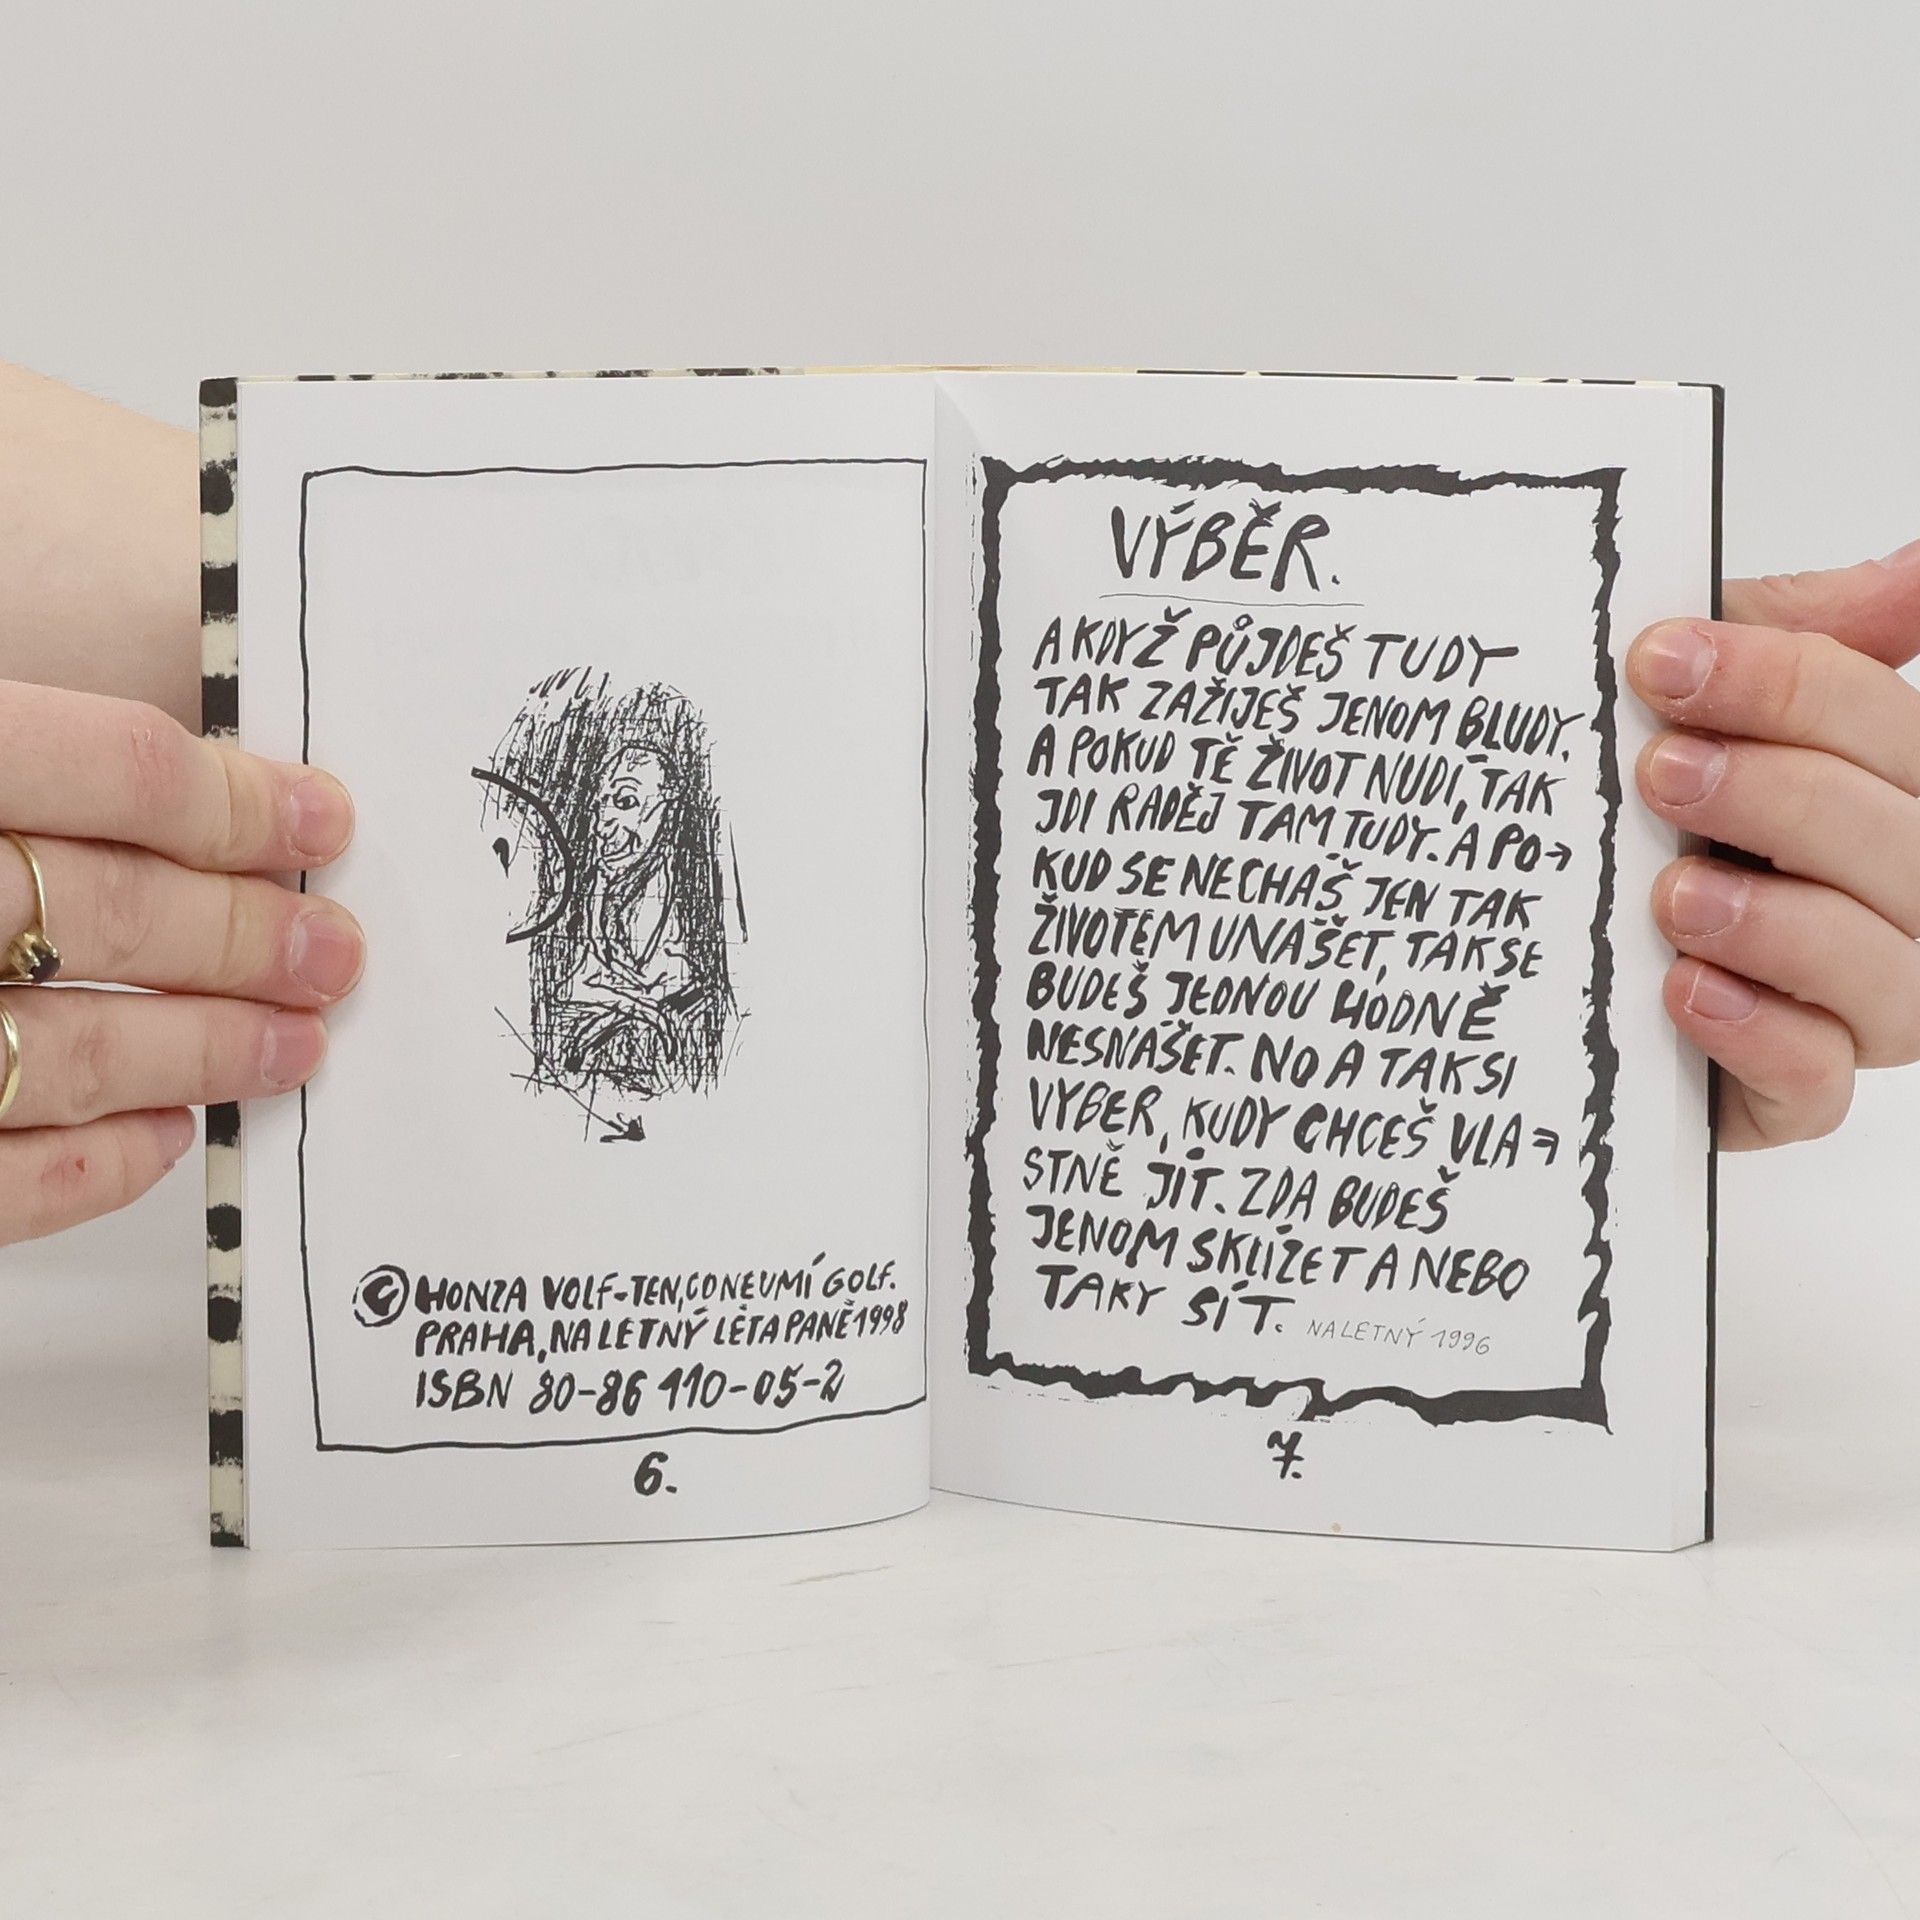 © HONZA VOLF-TEN, CO NEUMÍ GOLF.
PRAHA, NA LETNÝ LÉTA PANĚ 1998
ISBN 80-86 110-05-2
6.
VÝBĚR.
A KDYŽ PŮJDEŠ TUDY
TAK ZAŽIJEŠ JENOM BLUDY.
A POKUD TĚ ŽIVOT NUDÍ, TAK
JDI RADĚJ TAMTUDY. A PO→
KUD SE NECHÁŠ JEN TAK
ŽIVOTEM UNÁŠET, TAK SE
BUDEŠ JEDNOU HODNĚ
NESNÁŠET. NO A TAK SI
VYBER, KUDY CHCEŠ VLA=
STNĚ JÍT. ZDA BUDEŠ
JENOM SKLÍZET A NEBO
TAKY SÍT. NA LETNÝ 1996
7.